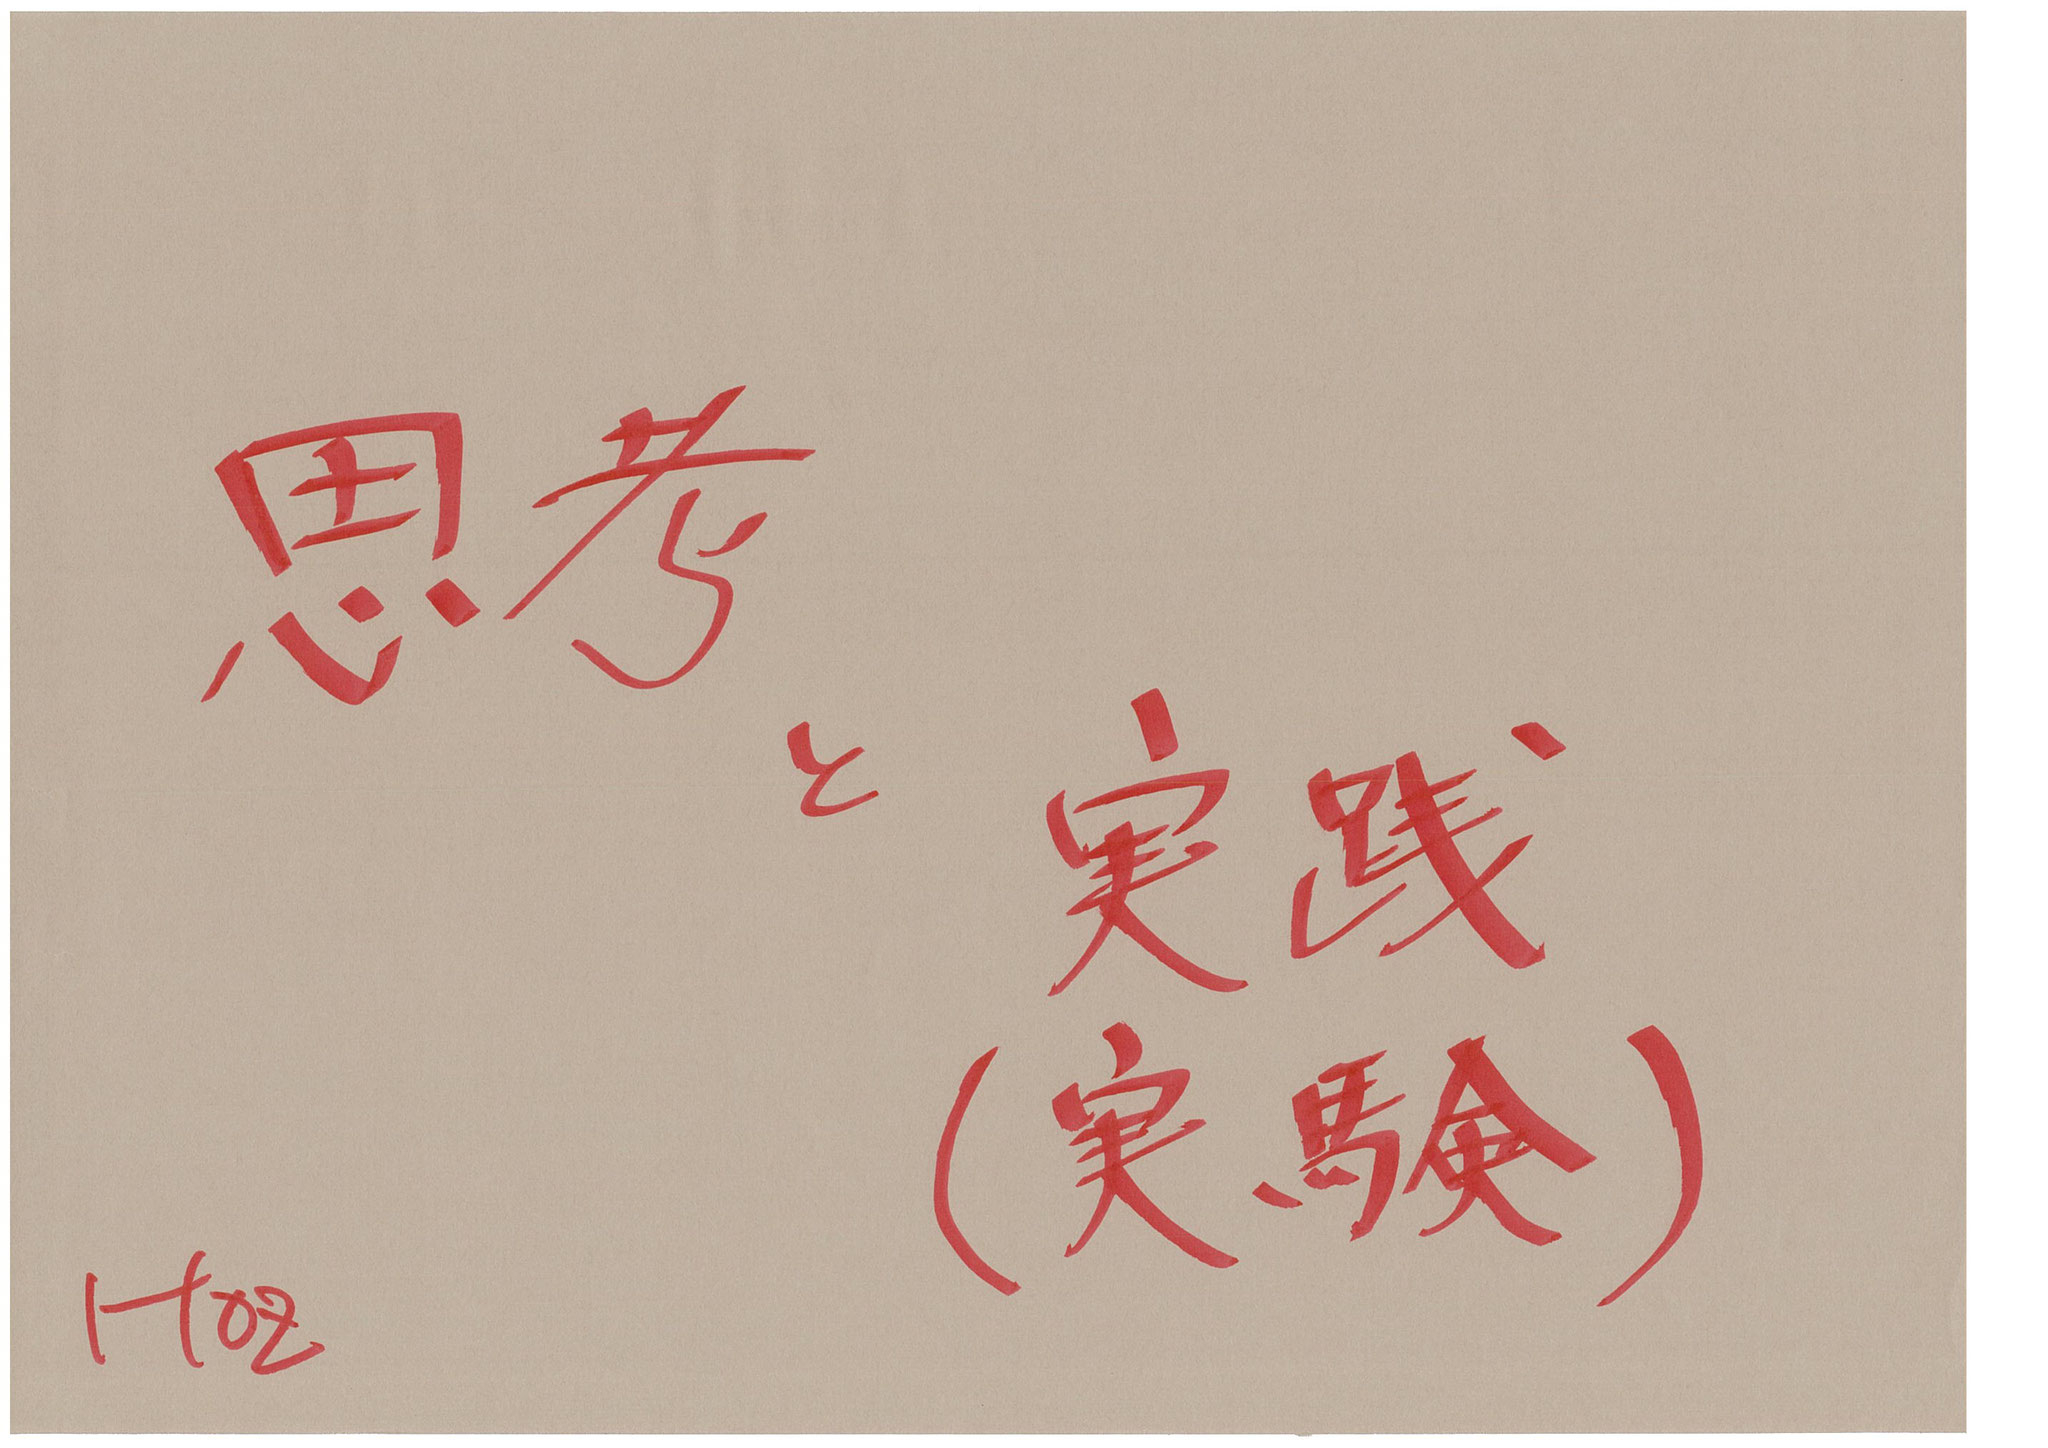 思考
と
実践
(実験)
Hoz